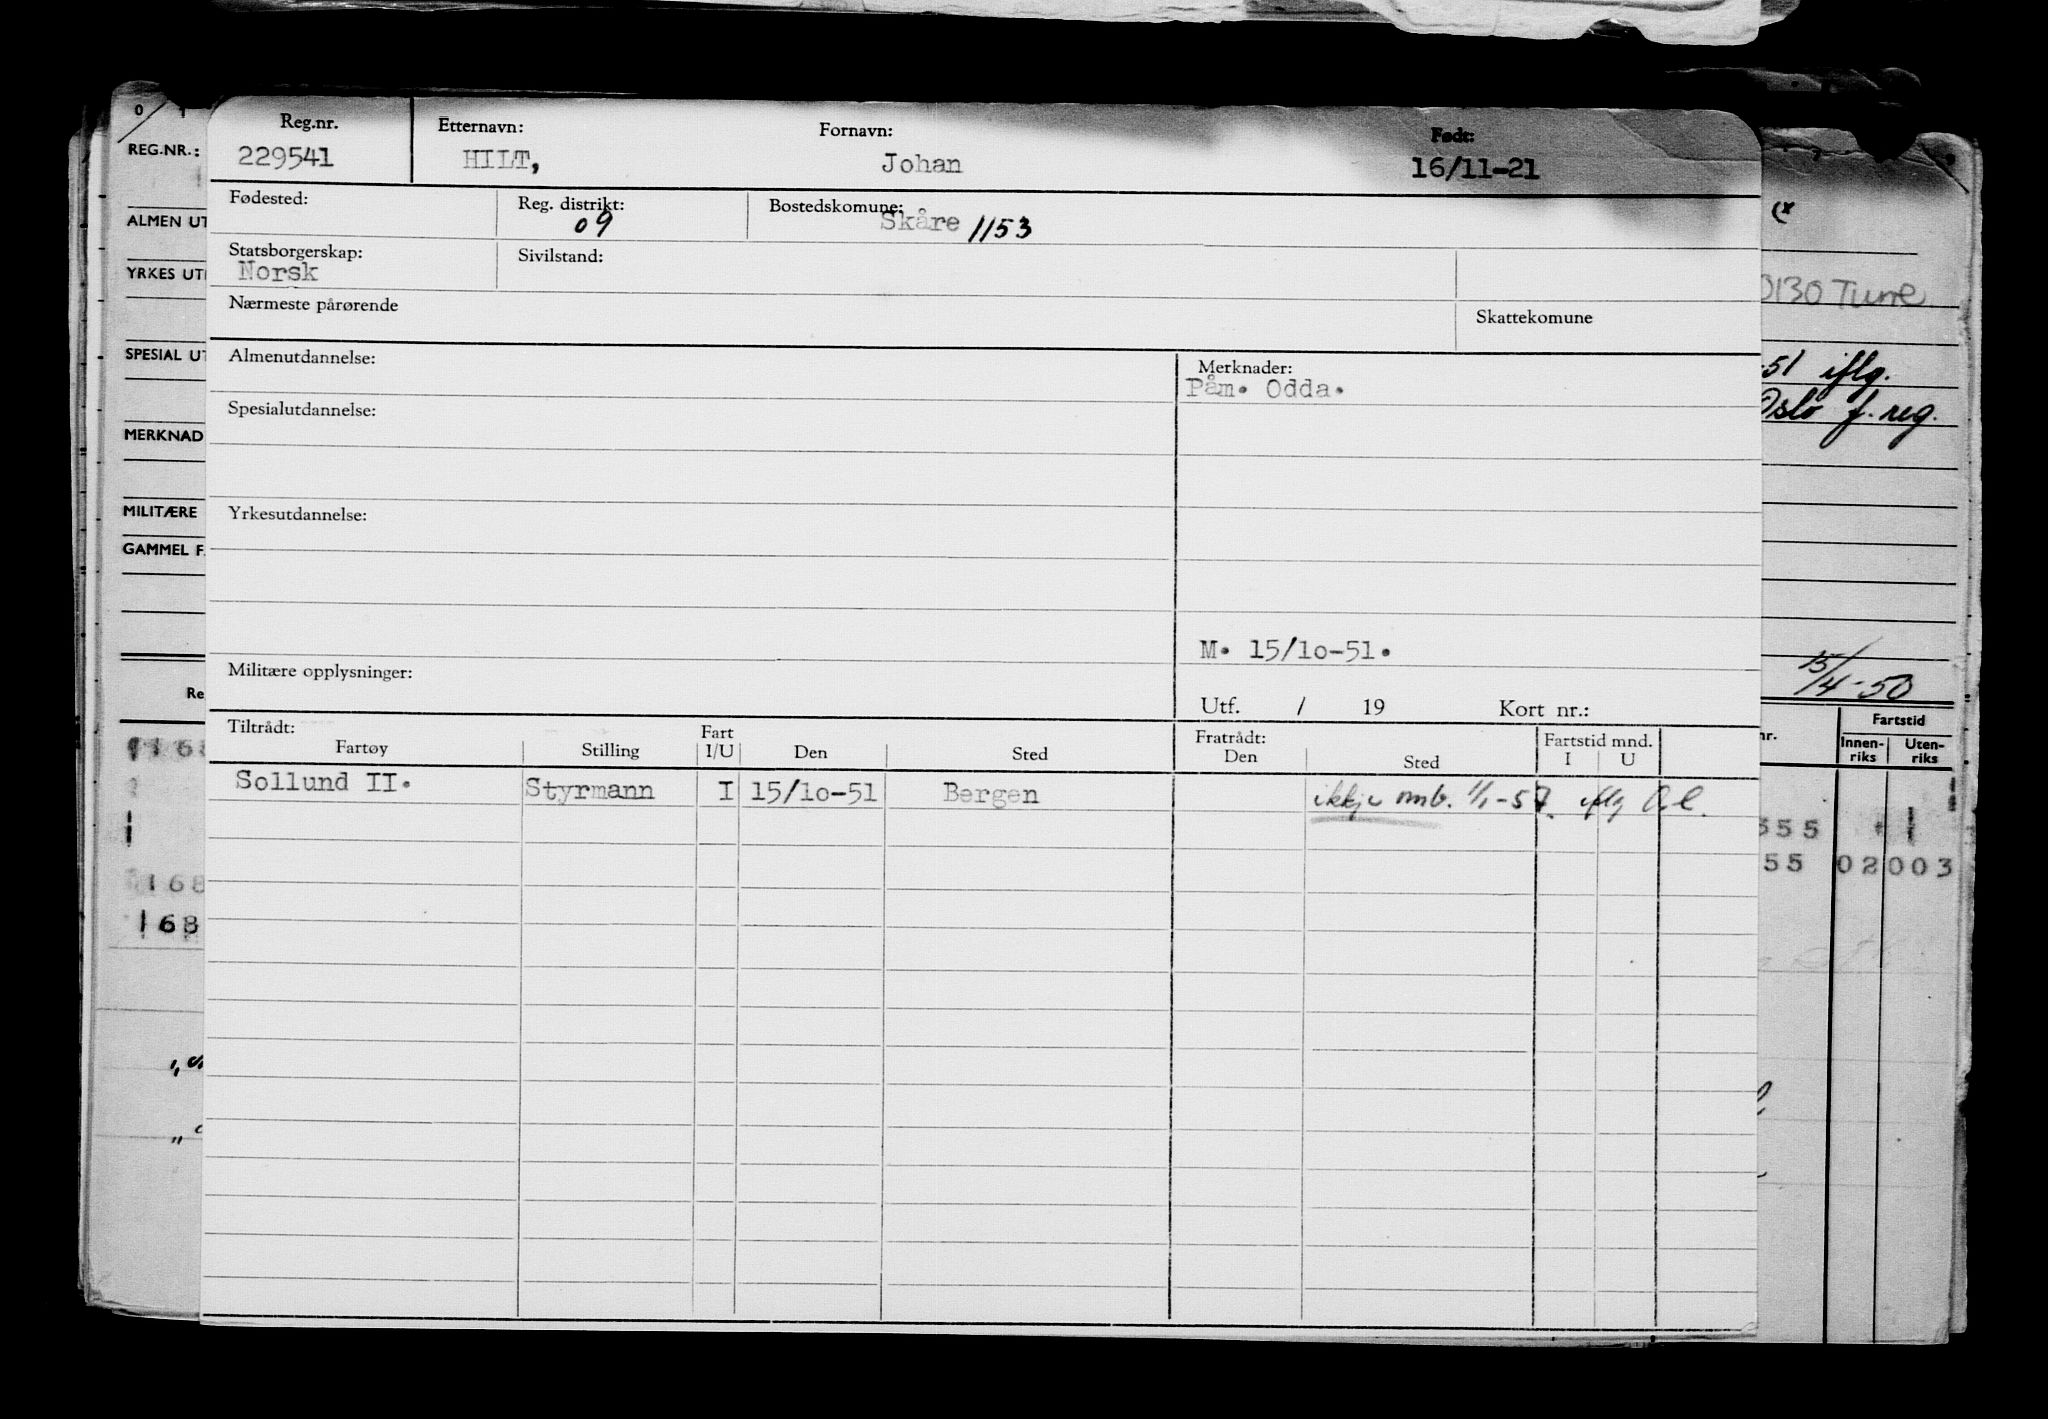 Reg.nr. Etternavn: Fornavn: Født:
229541 HILT, Johan 16/11-21
Fødested: Reg. distrikt: Bostedskomune:
09 Skåre 1153
Statsborgerskap: Sivilstand:
Norsk
Nærmeste pårørende Skattekomune
Almenutdannelse: Merknader:
Påm. Odda.
Spesialutdannelse:
Yrkesutdannelse:
M. 15/10-51.
Militære opplysninger:
Utf. / 19 Kort nr.:
Tiltrådt: Fratrådt: Fartstid mnd.
Fartøy Stilling Fart I/U Den Sted Den Sted I U
Sollund II. Styrmann I 15/10-51 Bergen ikkje 1/1-57. iflg
0 1
REG.NR.:
ALMEN UT
YRKES UT
SPESIAL UT
MERKNAD
MILITÆRE
GAMMEL F
Re
168
168
168
0130 Turre
51 iflg.
Oslo f. reg.
15/4-50
nr. Fartstid
Innen-riks Uten-riks
555
55 02003